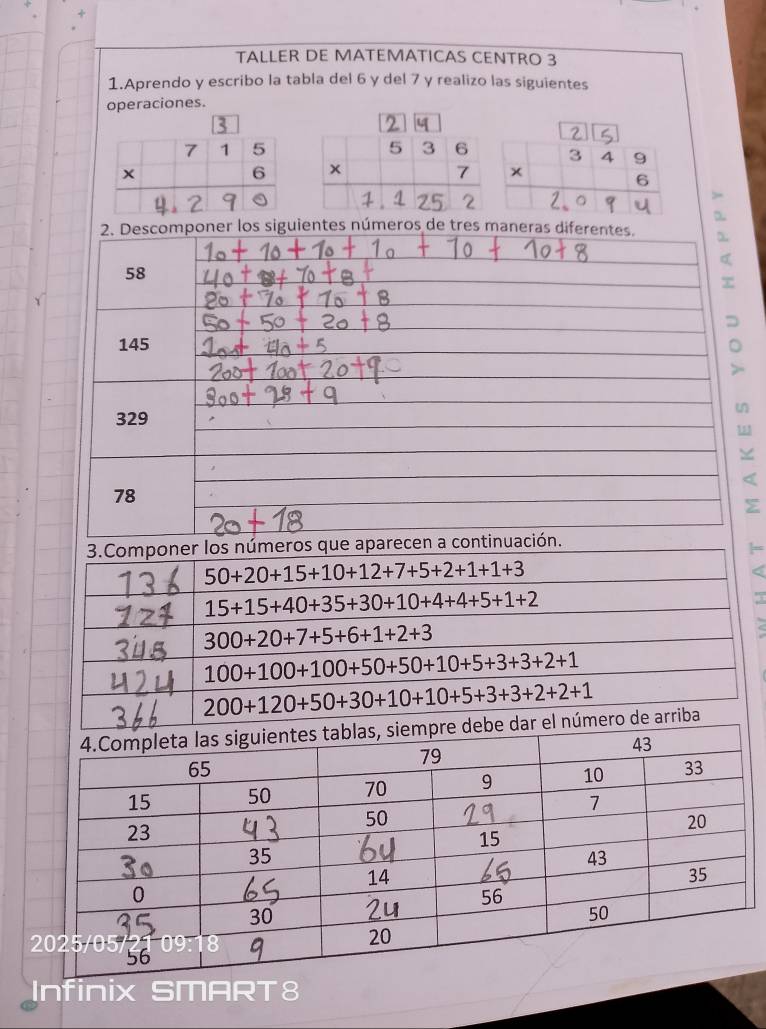 TALLER DE MATEMATICAS CENTRO 3
1.Aprendo y escribo la tabla del 6 y del 7 y realizo las siguientes
operaciones.
3
7 1 5
x 6
4.290
2 4
5 3 6
x 7
1.1 25 2
2 5
3 4 9
x 6
2.094
2. Descomponer los siguientes números de tres maneras diferentes.
58
10+10+10+10+10+10+8
40+ + 10+8+
20+10+10+8
145
50+50+20+8
100+40+5
200+100+20+9
329
300+28+9
78
20+18
3.Componer los números que aparecen a continuación.
136 50+20+15+10+12+7+5+2+1+1+3
127 15+15+40+35+30+10+4+4+5+1+2
345 300+20+7+5+6+1+2+3
424 100+100+100+50+50+10+5+3+3+2+1
366 200+120+50+30+10+10+5+3+3+2+2+1
4.Completa las siguientes tablas, siempre debe dar el número de arriba
65 79 43
15 50 70 9 10 33
23 43 50 29 7
30 35 64 15 20
0 65 14 65 43
35 30 24 56 35
56 9 20 50
WHAT MAKES YOU HAPPY
2025/05/21 09:18
Infinix SMART 8